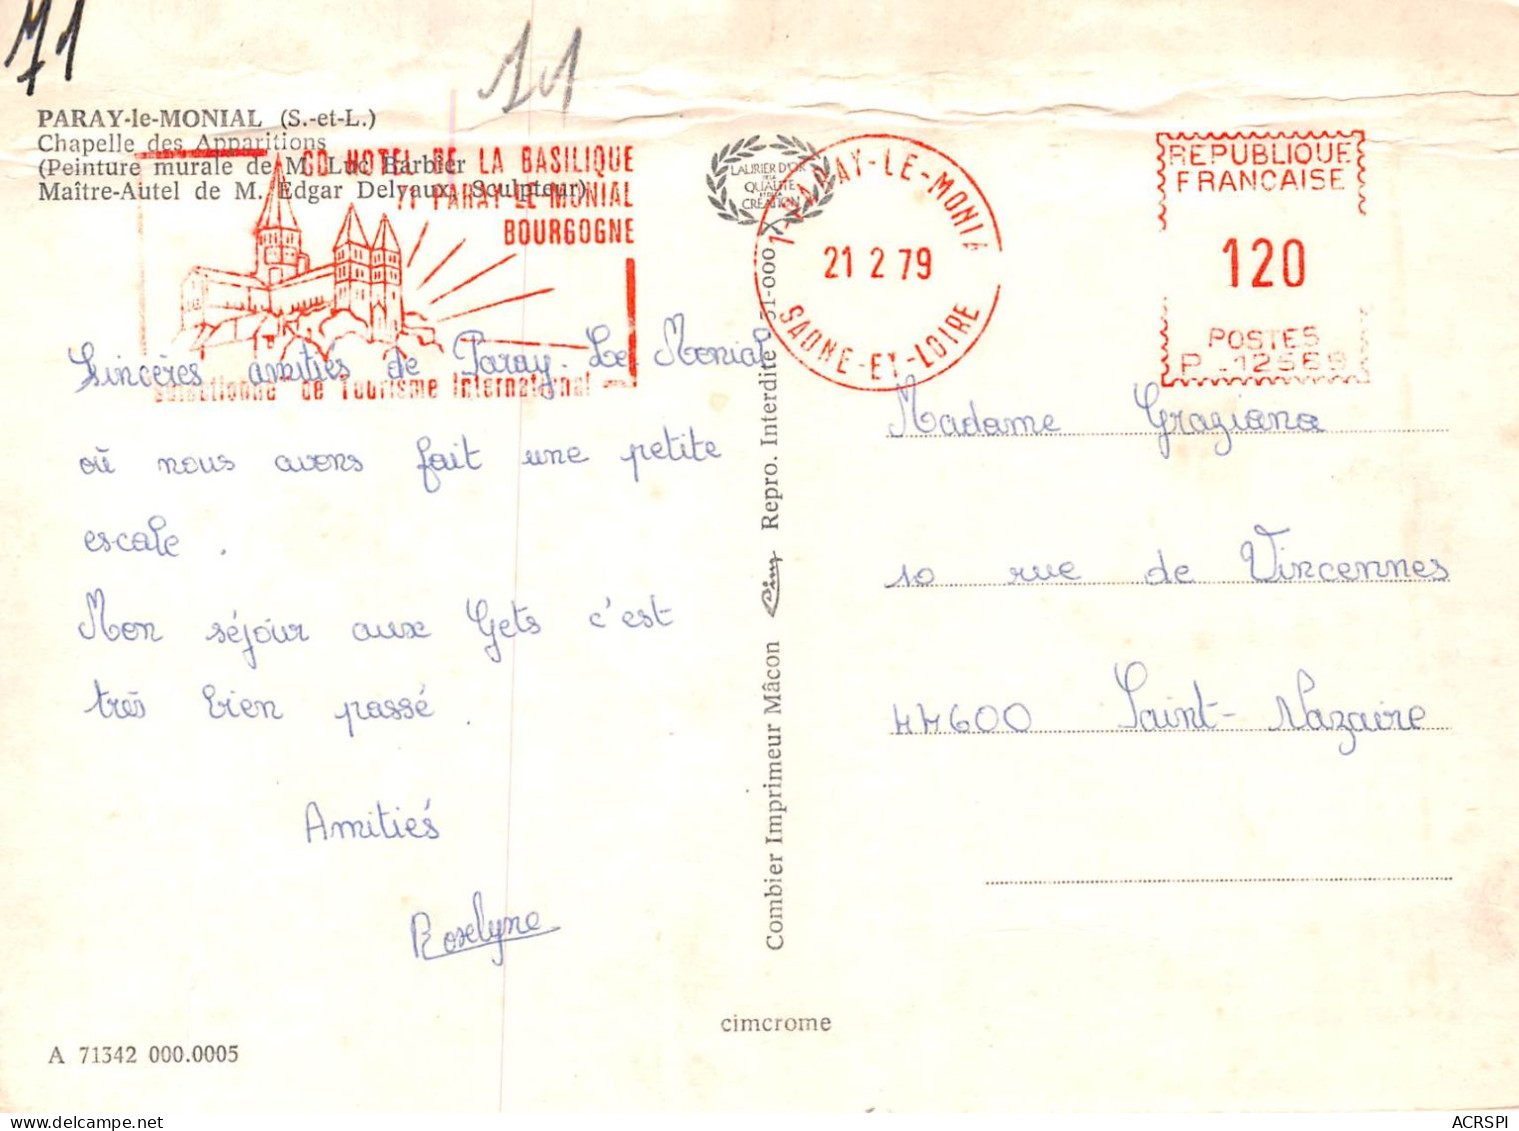 71
11
PARAY-le-MONIAL (S.-et-L.)
Chapelle des Apparitions
(Peinture murale de M. Luc Barbier
Maître-Autel de M. Edgar Delvaux, Sculpteur)
GD HOTEL DE LA BASILIQUE
71 PARAY-LE-MONIAL
BOURGOGNE
Sélectionné de Tourisme International
LAURIER D'OR
DE LA
QUALITÉ
CRÉATION
71-PARAY-LE-MONIA
21 2 79
SAONE-ET-LOIRE
REPUBLIQUE
FRANCAISE
120
POSTES
P.12569
Sincères amitiés de Paray-Le Monial
où nous avons fait une petite
escale.
Mon séjour aux Gets c'est
très bien passé.
Amitiés
Roselyne
Combier Imprimeur Mâcon Cim Repro. Interdite 51-000
Madame Graziana
10 rue de Vincennes
44600 Saint-Nazaire
cimcrome
A 71342 000.0005
ACRSPI